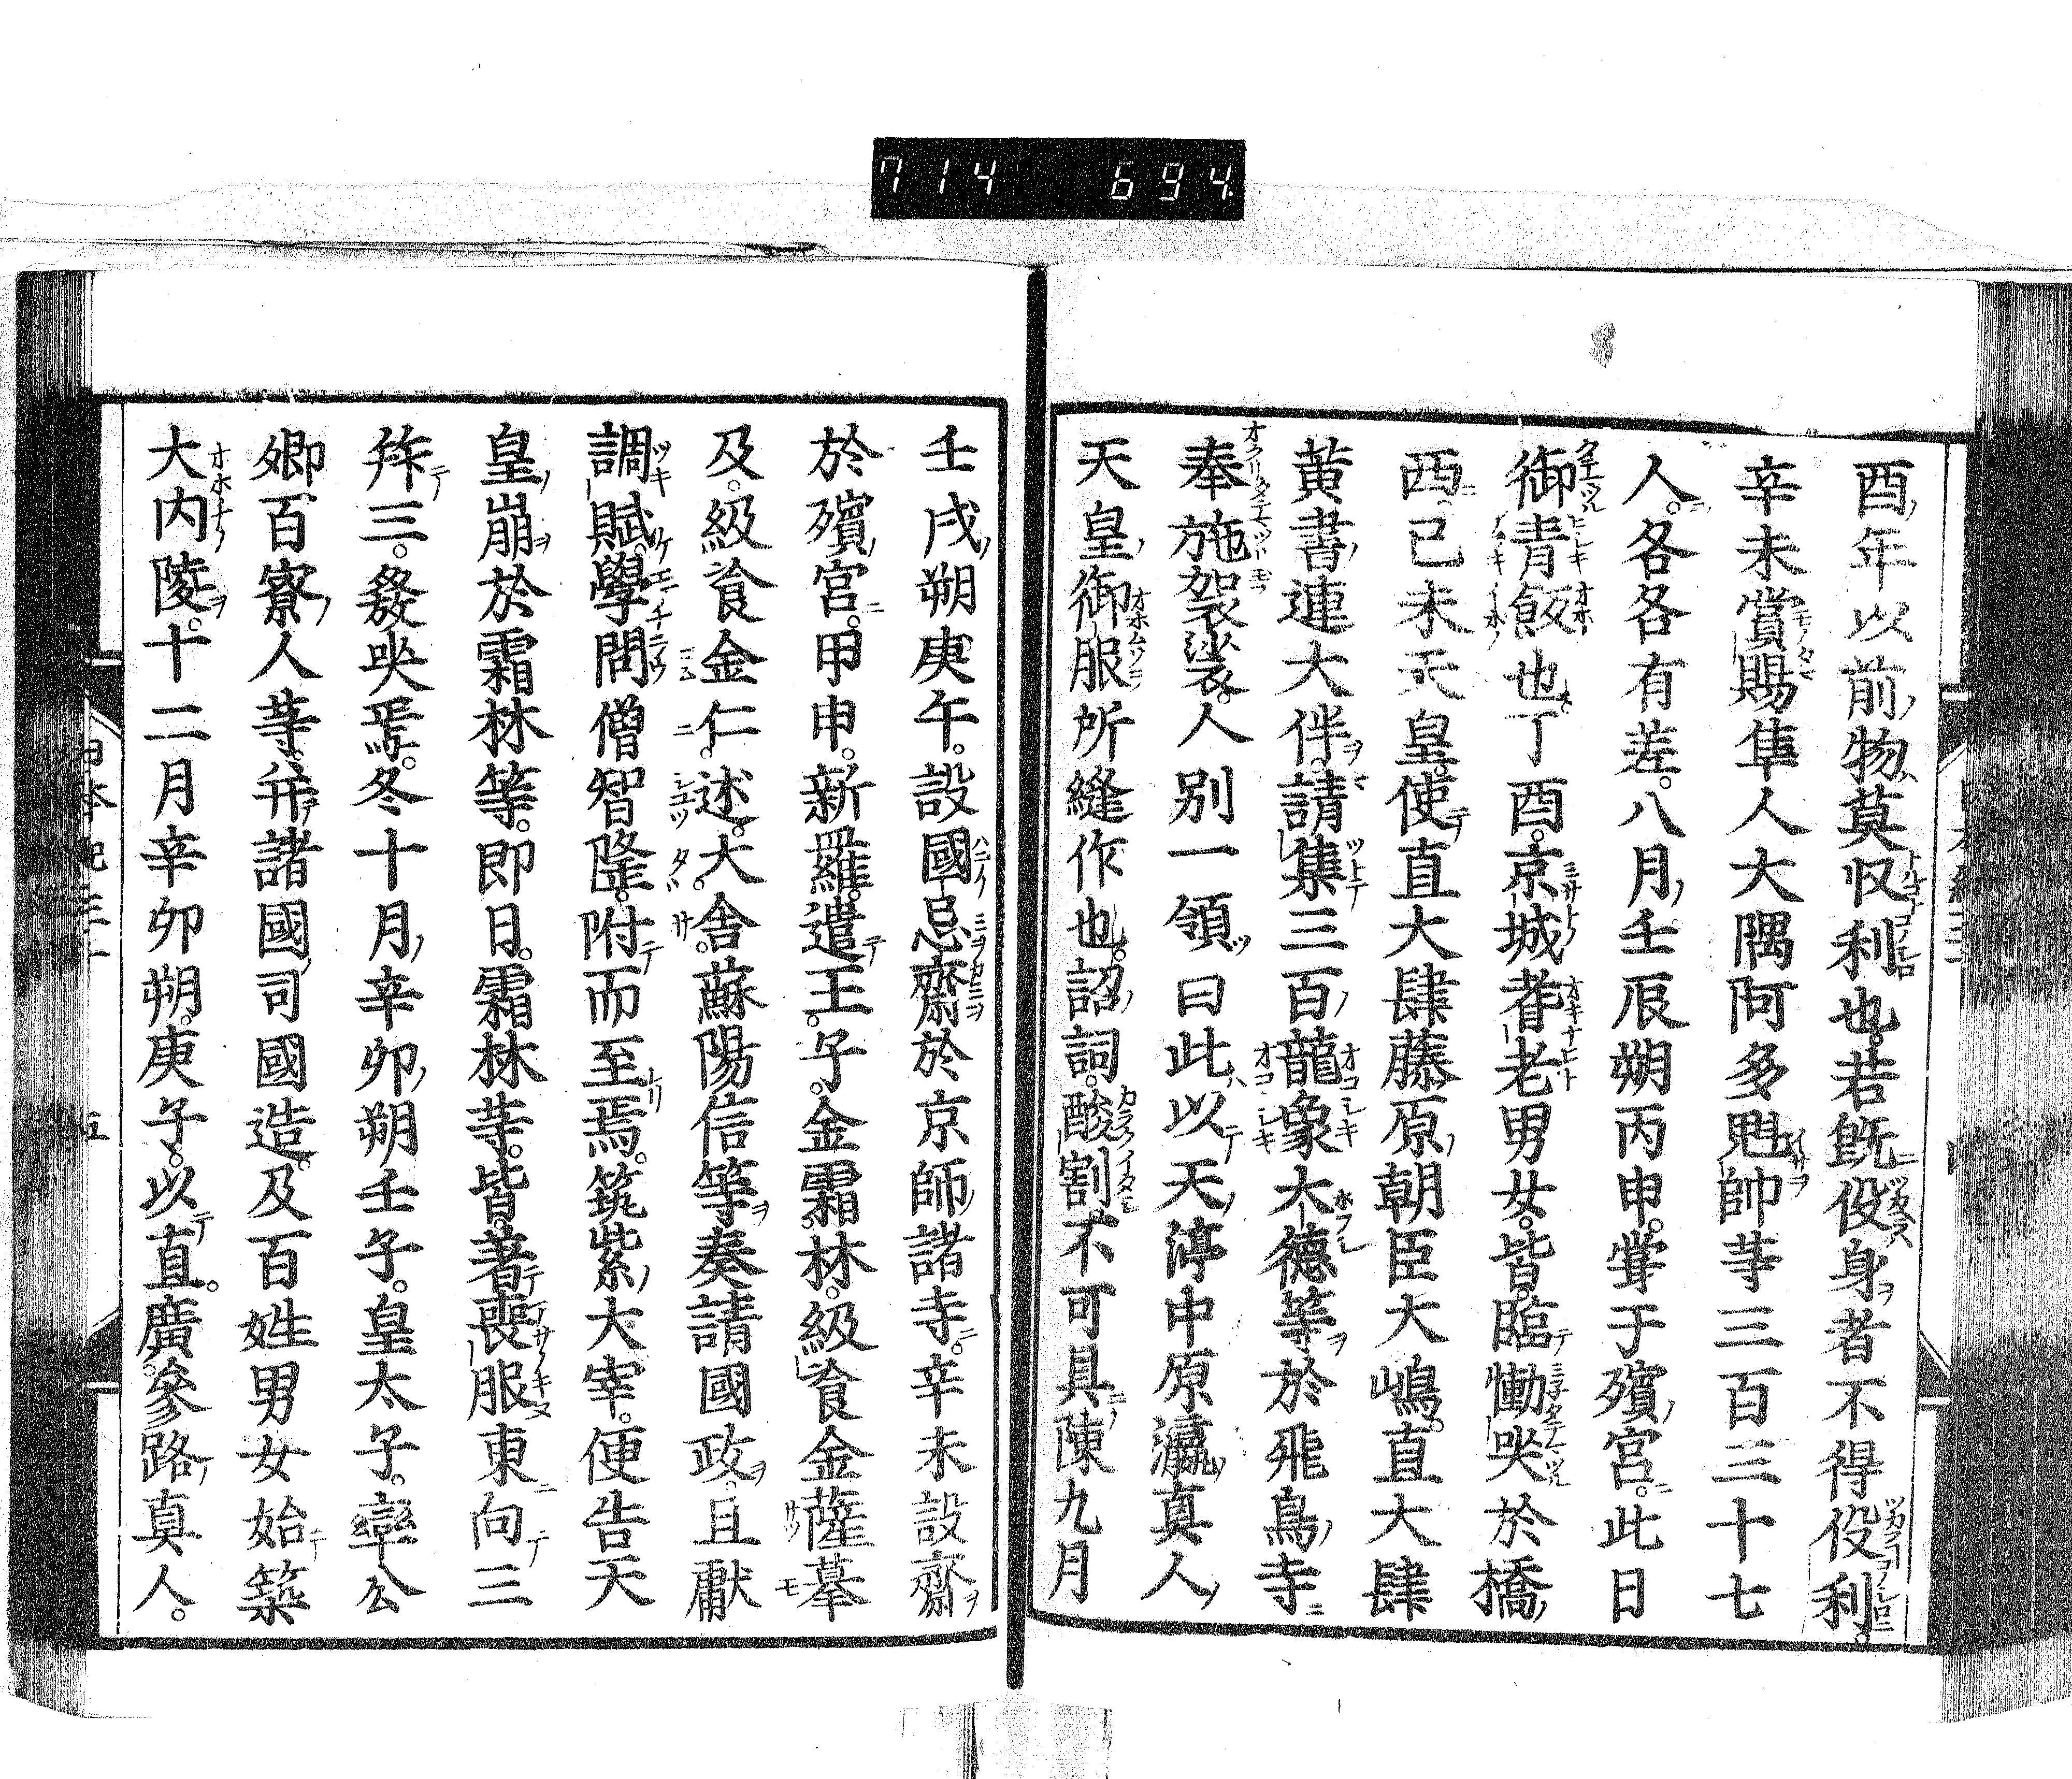 714 694
酉年以前物莫収利也若既役身者不得役利
辛未賞賜隼人大隅阿多魁帥等三百三十七
人各各有差八月壬辰朔丙申甞于殯宮此日
御青飯也丁酉京城耆老男女皆臨慟哭於橋
西己未天皇使直大肆藤原朝臣大嶋直大肆
黄書連大伴請集三百龍象大德等於飛鳥寺
奉施袈裟人別一領曰此以天渟中原瀛真人
天皇御服所縫作也詔詞酸割不可具陳九月
壬戌朔庚午設國忌齋於京師諸寺辛未設齋
於殯宮甲申新羅遣王子金霜林級飡金薩摹
及級飡金仁述大舍蘇陽信等奏請國政且獻
調賦學問僧智隆附而至焉筑紫大宰便告天
皇崩於霜林等即日霜林等皆著喪服東向三
拜三發哭焉冬十月辛卯朔壬子皇太子率公
卿百寮人等并諸國司國造及百姓男女始築
大内陵十二月辛卯朔庚子以直廣參路真人
日本紀三十
五